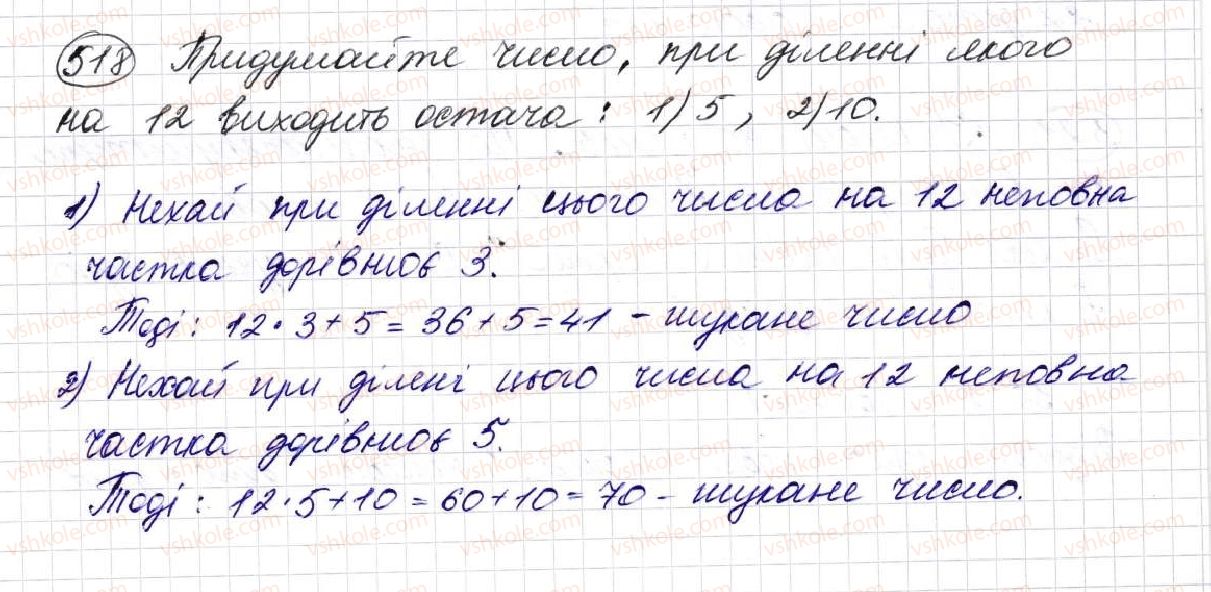 518 Придумайте число, при діленні якого
на 12 виходить остача: 1) 5, 2) 10.
1) Нехай при діленні цього числа на 12 неповна
частка дорівнює 3.
Тоді: 12·3+5=36+5=41 – шукане число
2) Нехай при ділені цього числа на 12 неповна
частка дорівнює 5.
Тоді: 12·5+10=60+10=70 – шукане число.